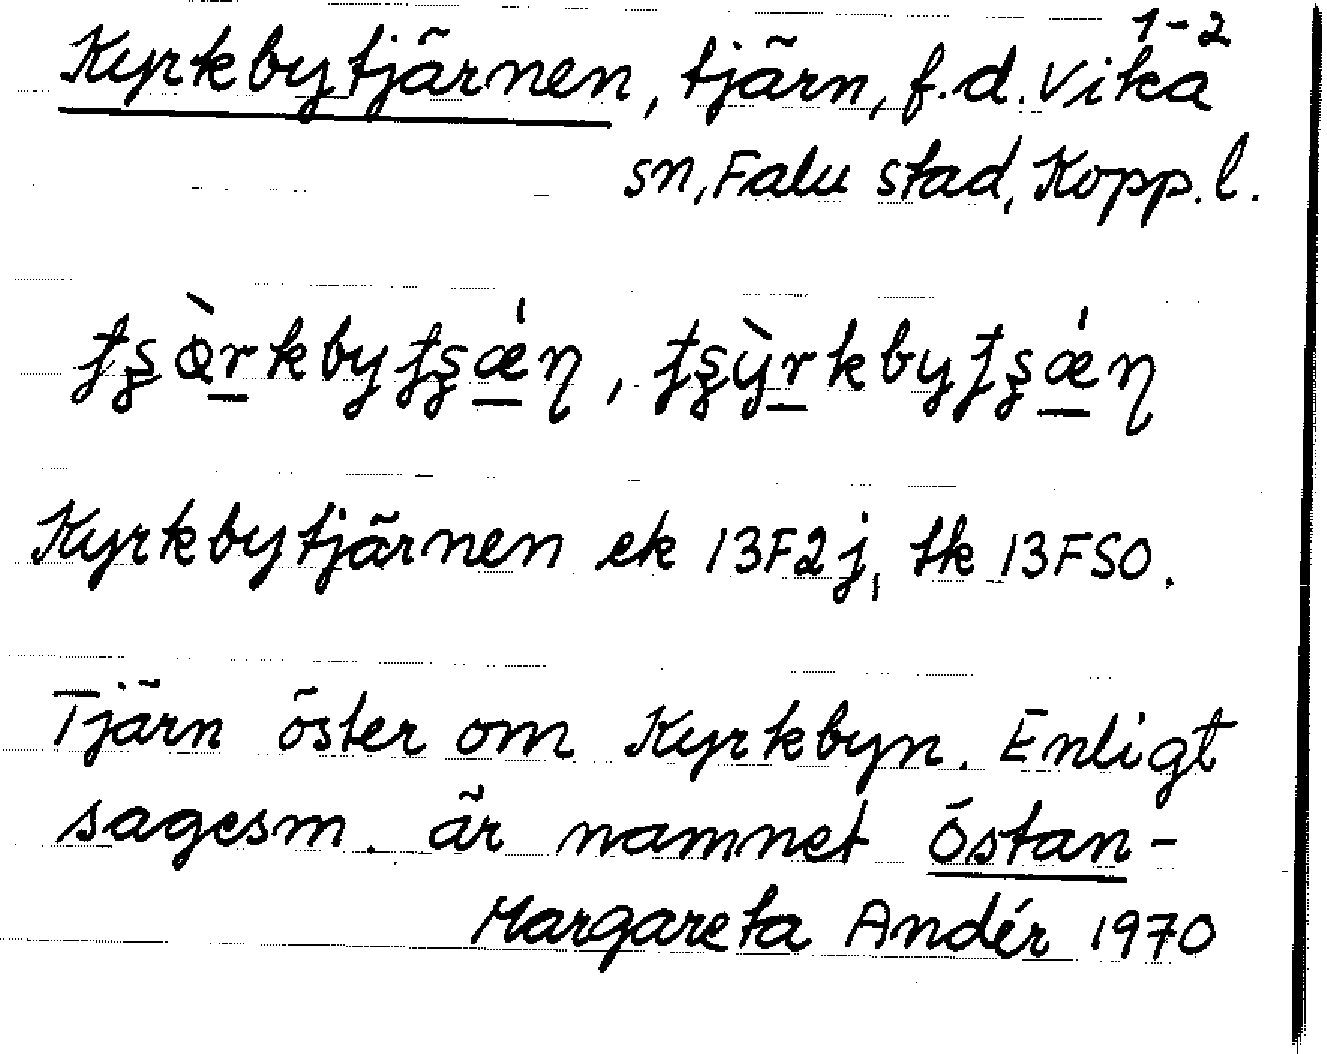 1-2
Kyrkbytjärnen, tjärn, f.d. Vika
sn, Falu stad, Kopp. l.
Kyrkbytjärnen ek 13F2j, tk 13FSO.
Tjärn öster om Kyrkbyn. Enligt
sagesm. är namnet Östan-
Margareta Andér 1970